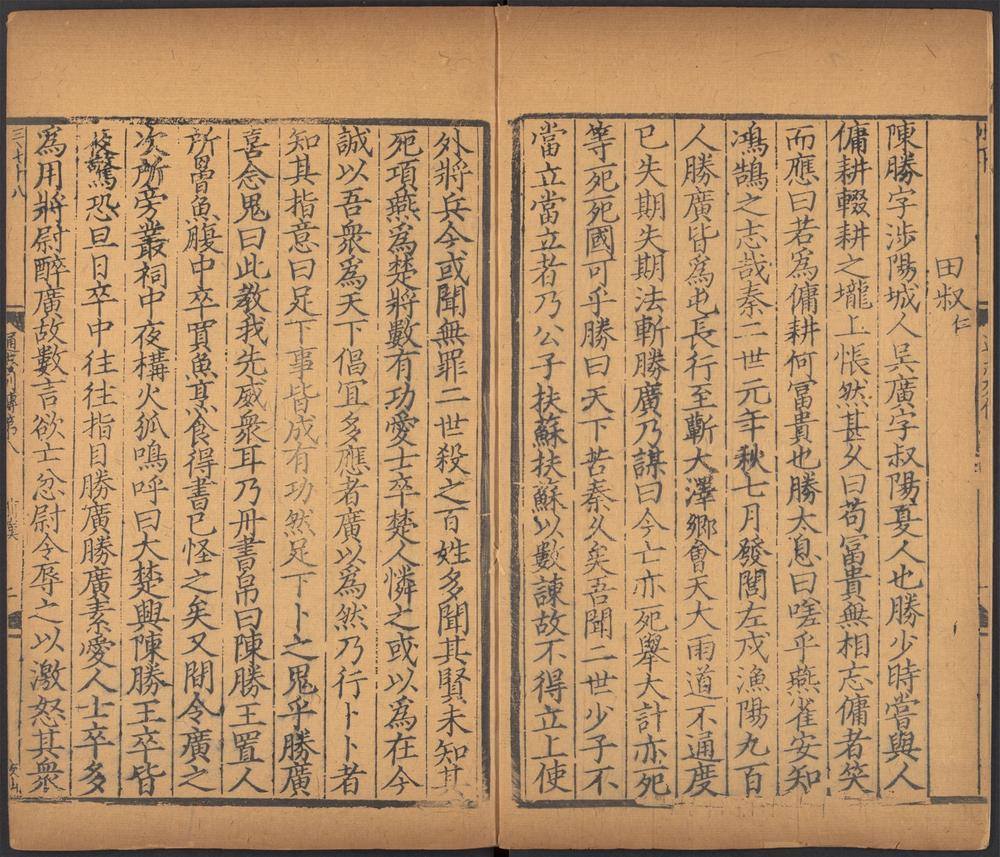 田叔仁
陳勝字涉陽城人吳廣字叔陽夏人也勝少時嘗與人
傭耕輟耕之壠上悵然甚乆曰苟冨貴無相忘傭者笑
而應曰若爲傭耕何冨貴也勝太息曰嗟乎燕雀安知
鴻鵠之志哉秦二世元年秋七月發閭左戍漁陽九百
人勝廣皆爲屯長行至蘄大澤鄉會天大雨道不通度
已失期失期法斬勝廣乃謀曰今亡亦死舉大計亦死
等死死國可乎勝曰天下苦秦乆矣吾聞二世少子不
當立當立者乃公子扶蘇扶蘇以數諫故不得立上使
外將兵今或聞無罪二世殺之百姓多聞其賢未知其
死項燕爲楚將數有功愛士卒楚人憐之或以爲在今
誠以吾衆爲天下倡冝多應者廣以爲然乃行卜卜者
知其指意曰足下事皆成有功然足下卜之鬼乎勝廣
喜念鬼曰此教我先威衆耳乃丹書帛曰陳勝王置人
所罾魚腹中卒買魚烹食得書已怪之矣又間令廣之
次所旁叢祠中夜構火狐鳴呼曰大楚興陳勝王卒皆
夜驚恐旦日卒中往往指目勝廣勝廣素愛人士卒多
爲用將尉醉廣故數言欲亡忿尉令辱之以激怒其衆
三八七十八
通志列傳第八